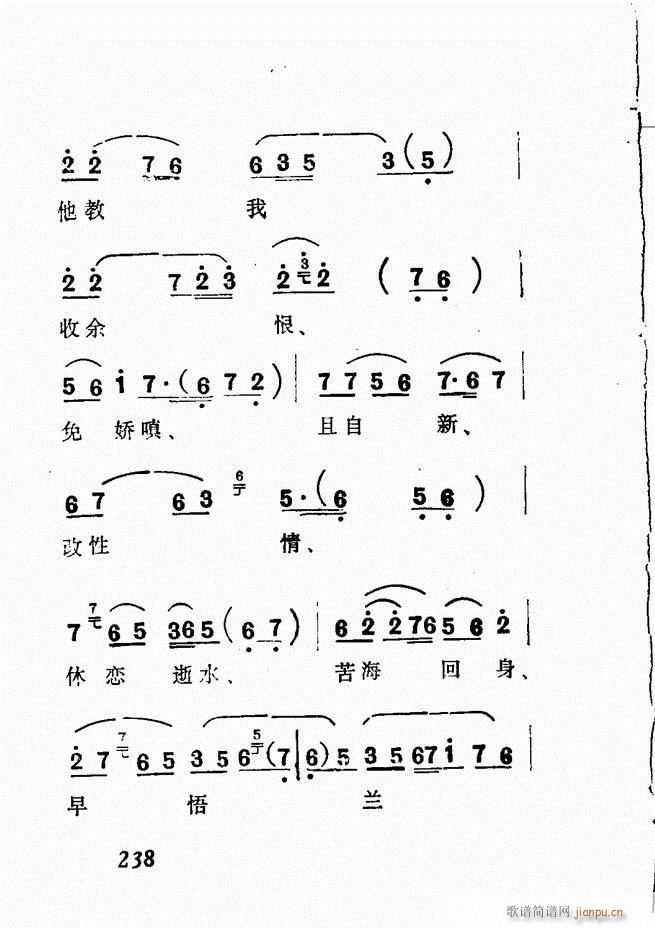 2 2 7 6 6 3 5 3 ( 5 )
他教 我
2 2 7 2 3 2 3 2 ( 7 6 )
收余 恨、
5 6 1 7 · ( 6 7 2 ) 7 7 5 6 7 · 6 7
免 娇嗔、 且自 新、
6 7 6 3 6 5 · ( 6 5 6 )
改性 情、
7 7 6 5 3 6 5 ( 6 7 ) 6 2 2 7 6 5 6 2
休 恋 逝水、 苦海 回 身、
2 7 7 6 5 3 5 6 5 ( 7 6 ) 5 3 5 6 7 1 7 6
早 悟 兰
238
歌谱简谱网 jianpu.cn